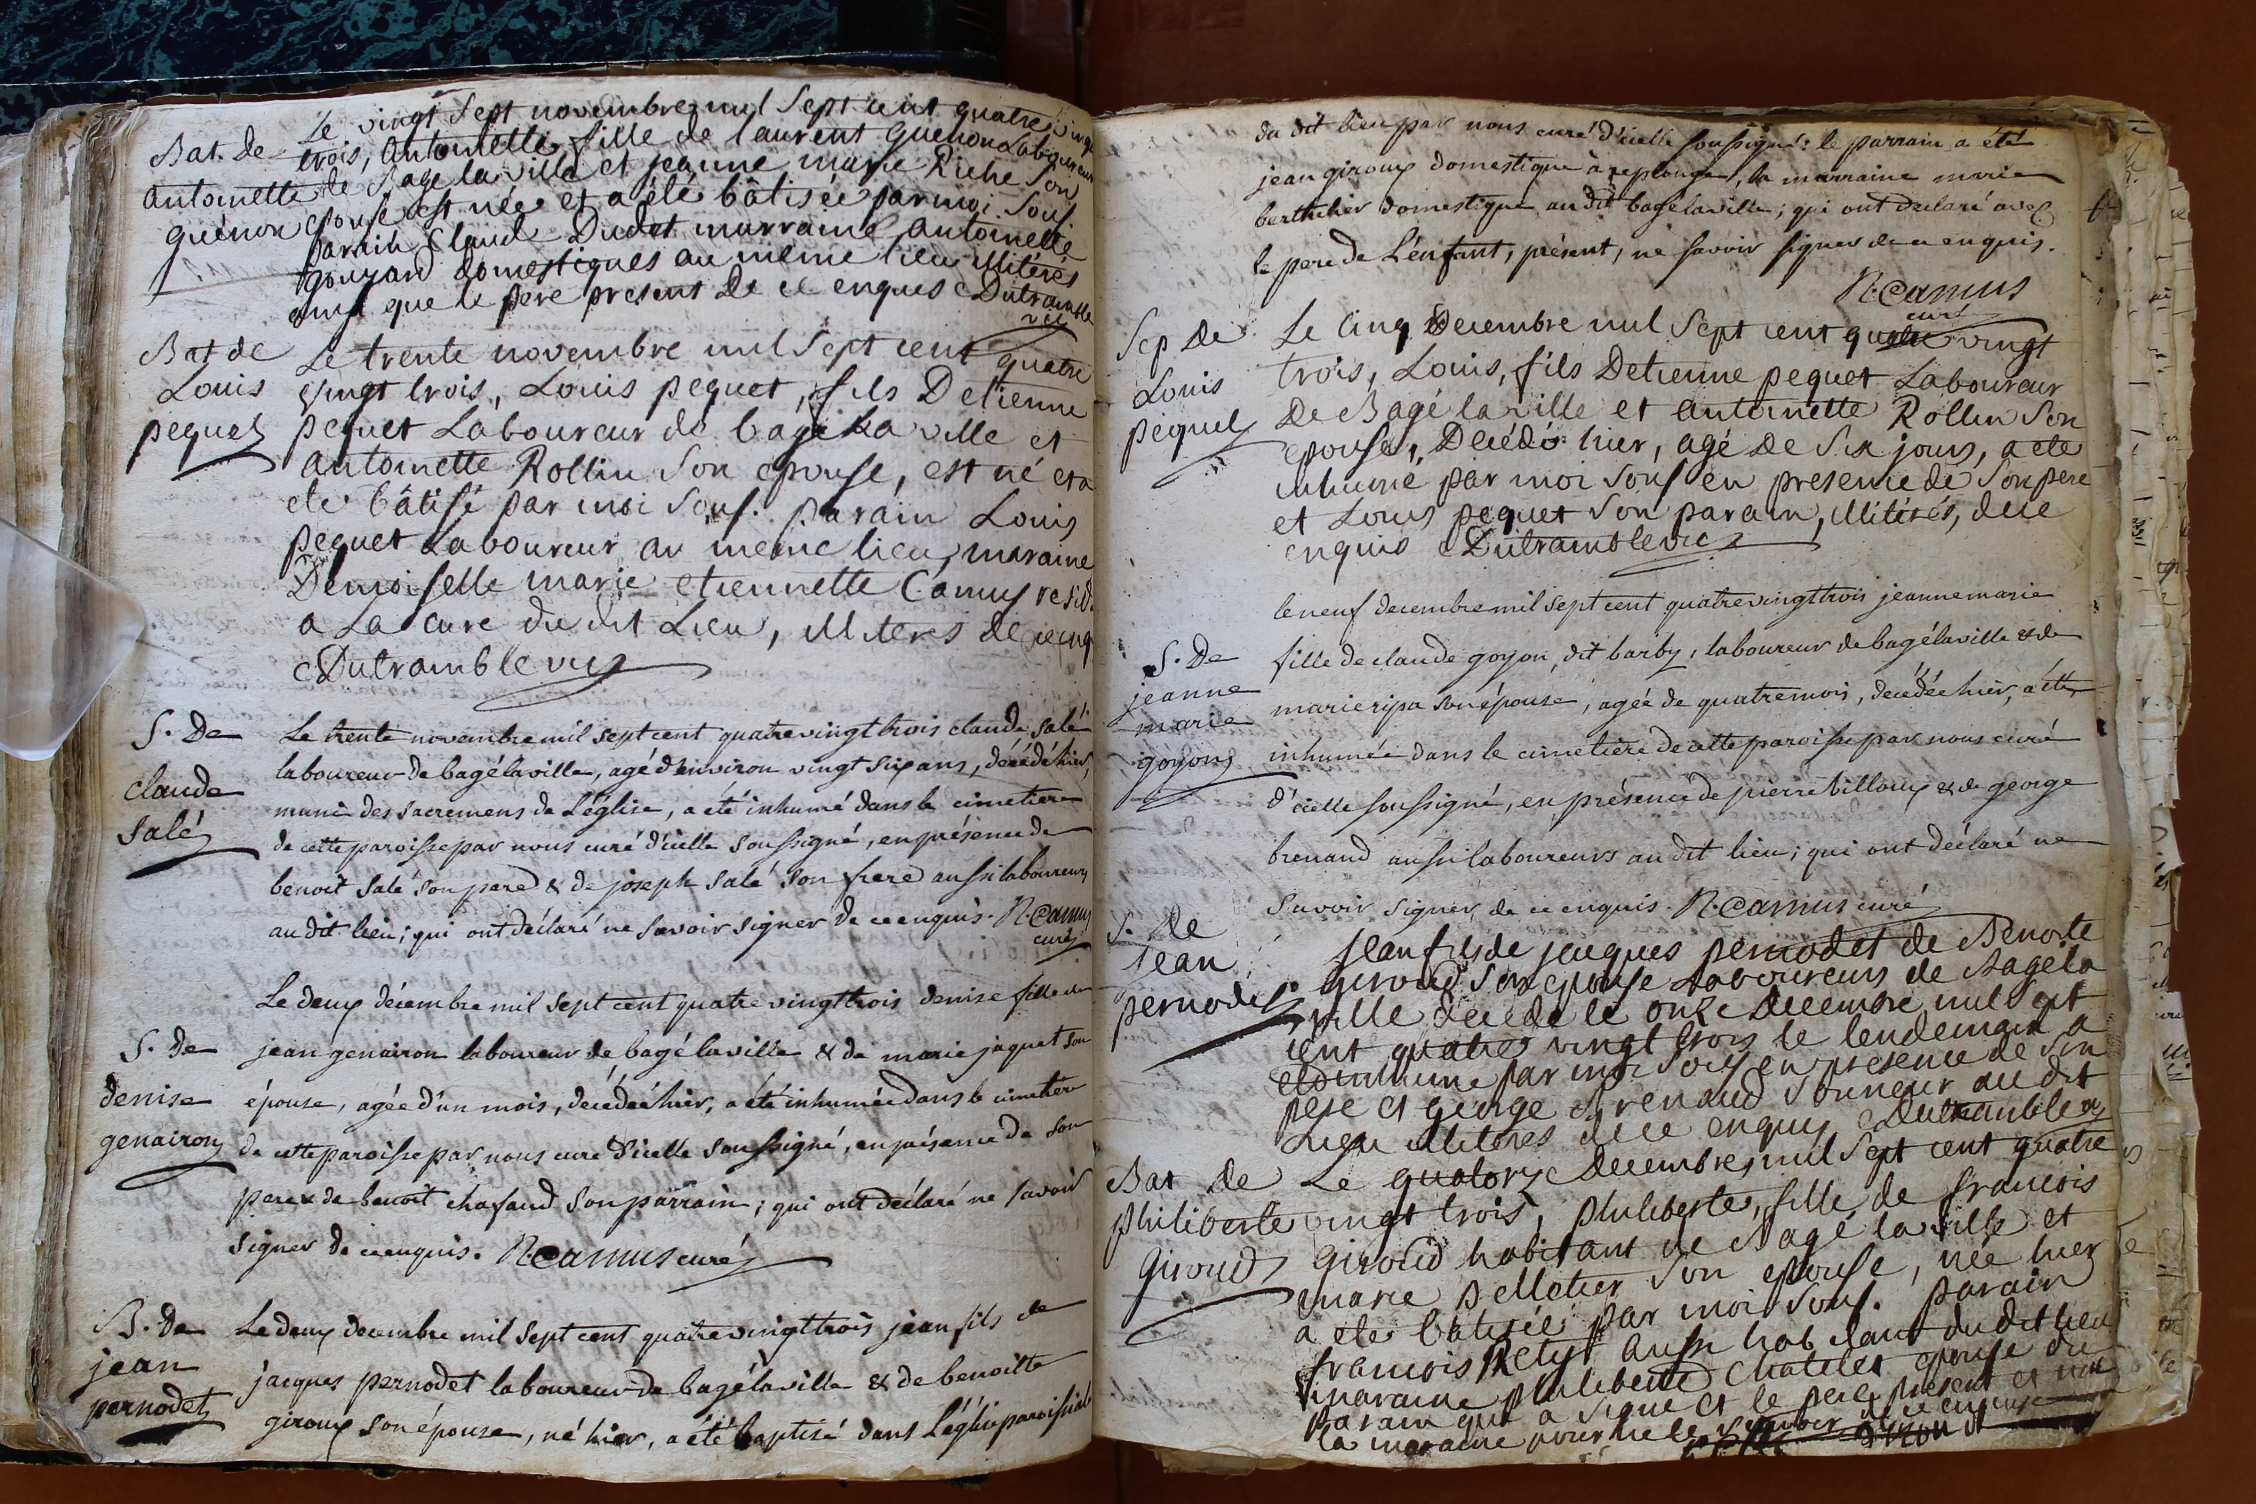 Bat. de
antoinette
guénon
Le vingt Sept novembre mil Sept cent quatre vingt
trois, antoinette fille de laurent Guenon Laboureur
de Bagé la ville et jeanne marie Riche Son
epouse est née et a été bâtisée par moi Sous.
parain Claude Dudet marraine antoinette
gouyard domestiques au même lieu illitérés
ainsi que le pere present De ce enquis Dutramble
vic
Bat de
Louis
pequet
Le trente novembre mil Sept cent quatre
vingt trois, Louis pequet, fils Detienne
pequet Laboureur de bagé La ville et
antoinette Rollin Son epouse, est né et a
ete bâtisé par moi Sous. parain Louis
pequet Laboureur au meme lieu, maraine
Demoiselle marie etiennette Camus resid.
a La cure du dit Lieu, illiteres de ce enq
Dutramble vic
S. De
claude
Salé
Le trente novembre mil sept cent quatre vingt trois claude Salé
laboureur de bagélaville, agé d'environ vingt six ans, décédé hier,
muni des sacremens de L'église, a été inhumé dans le cimetiere
de cette paroisse par nous curé d'icelle soussigné, en présence de
benoit Salé son pere & de joseph Salé son frere aussi laboureurs
au dit lieu; qui ont déclaré ne savoir signer de ce enquis. N. Camus
curé
S. de
denise
genairon
Le deux décembre mil sept cent quatre vingt trois denise fille de
jean genairon laboureur de bagé laville & de marie jaquet son
épouse, agée d'un mois, décédée hier, a été inhumée dans le cimetiere
de cette paroisse par nous curé d'icelle soussigné, en présence de son
pere & de benoit chafaud son parrain; qui ont déclaré ne savoir
signer de ce enquis. N Camus curé
B. de
jean
pernodet
Le deux decembre mil sept cent quatre vingt trois jean fils de
jacques pernodet laboureur de bagélaville & de benoitte
giroux son épouse, né hier, a été baptisé dans L'église paroissiale
du dit lieu par nous curé d'icelle soussigné: le parrain a été
jean giroux domestique à replonge, la marraine marie
berthelier domestique au dit bagélaville; qui ont declaré avec
le pere de L'enfant, présent, ne savoir signer de ce enquis.
N. Camus
curé
Sep De
Louis
pequet
Le Cinq Decembre mil Sept cent quatre vingt
trois, Louis, fils Detienne pequet Laboureur
De Bagé la ville et antoinette Rollin Son
epouse, Décédé hier, agé de Six jours, a ete
inhumé par moi Sous en presence de Son pere
et Louis pequet Son parain, illitérés, de ce
enquis Dutramble vic
S. De
jeanne
marie
goyon
le neuf decembre mil sept cent quatre vingt trois jeanne marie
fille de claude goyon, dit barby, laboureur de bagélaville & de
marie ripa son épouse, agée de quatre mois, décédée hier, a été
inhumée dans le cimetiere de cette paroisse par nous curé
d'icelle soussigné, en présence de pierre billoux & de george
brenaud aussi laboureurs au dit lieu; qui ont déclaré ne
savoir signer de ce enquis. N. Camus curé
S. de
Jean
pernodet
Jean fils de jacques pernodet de Benoite
Giroud Son epouse Laboureurs de Bagé la
ville décédé le onze Decembre mil Sept
cent quatre vingt trois le lendemain a
été inhumé par moi Sous en presence de Son
pere et george Brenaud Sonneur au dit
Lieu illiteres de ce enquis Dutramble vic
Bat de
philiberte
Giroud
Le quatorze Decembre mil Sept cent quatre
vingt trois, philiberte, fille de francois
Giroud habitant de Bagé la ville et
marie pelletier Son epouse, née hier
a ete bâtisée par moi Sous. parain
francois Retyt aussi habitant du dit lieu
maraine philiberte Chatelet epouse du
parain qui a Signé et le pere present et non
la maraine pour ne le